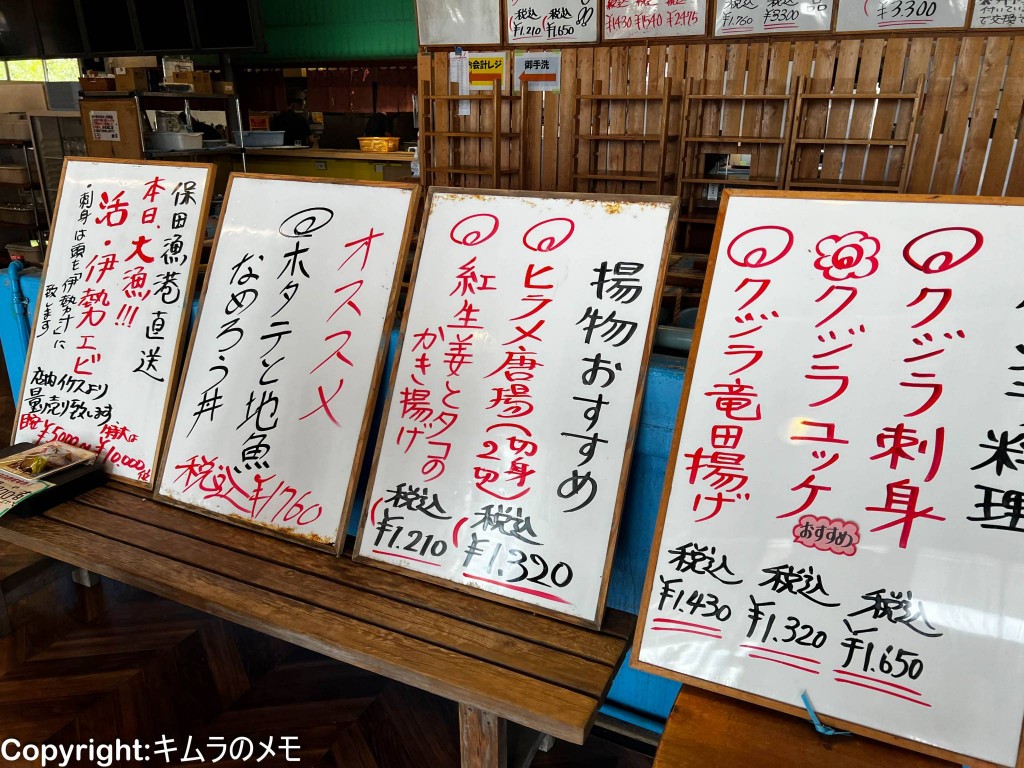 税込
¥1.210
税込
¥1.650
¥1430
¥1540
¥2475
税込
¥1.760
税込
¥3300
¥3300
会計レジ
御手洗
保田漁港直送
本日、大漁!!!
活・伊勢エビ
・刺身は頭を伊勢汁に
致します
店内イケスより
量り売り致します
¥5000
¥10,000位
オススメ
ホタテと地魚
なめろう丼
税込¥1760
揚物おすすめ
ヒラメ唐揚(切身2切)
税込
¥1.320
紅生姜とタコの
かき揚げ
税込
¥1.210
料理
クジラ刺身
税込
¥1.650
クジラユッケ
おすすめ
税込
¥1.320
クジラ竜田揚げ
税込
¥1.430
Copyright:キムラのメモ